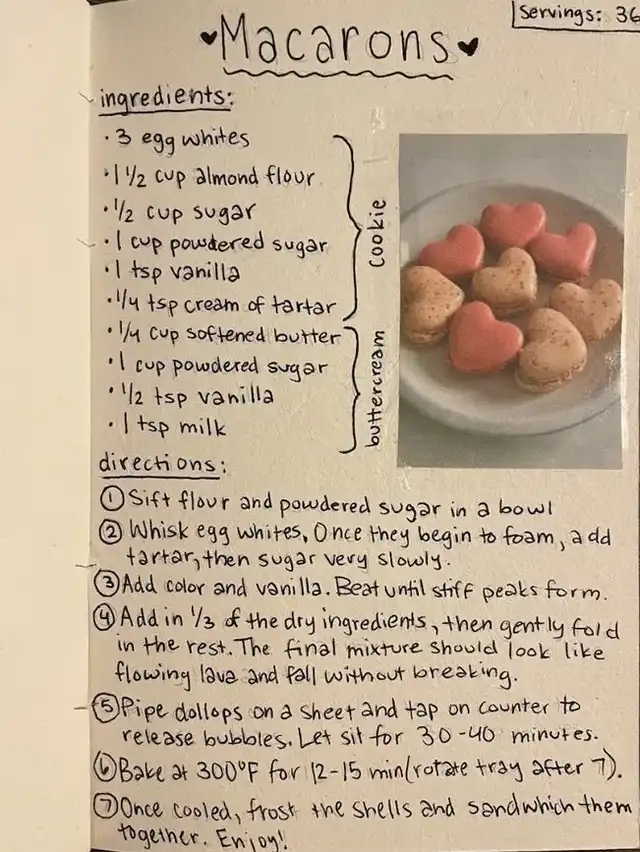 Servings: 36
Macarons
ingredients:
· 3 egg whites
· 1 1/2 cup almond flour
· 1/2 cup sugar
· 1 cup powdered sugar
· 1 tsp vanilla
· 1/4 tsp cream of tartar
cookie
· 1/4 cup softened butter
· 1 cup powdered sugar
· 1/2 tsp vanilla
· 1 tsp milk
buttercream
directions:
① Sift flour and powdered sugar in a bowl
② Whisk egg whites. Once they begin to foam, add
tartar, then sugar very slowly.
③ Add color and vanilla. Beat until stiff peaks form.
④ Add in 1/3 of the dry ingredients, then gently fold
in the rest. The final mixture should look like
flowing lava and fall without breaking.
⑤ Pipe dollops on a sheet and tap on counter to
release bubbles. Let sit for 30-40 minutes.
⑥ Bake at 300°F for 12-15 min (rotate tray after 7).
⑦ Once cooled, frost the shells and sandwhich them
together. Enjoy!